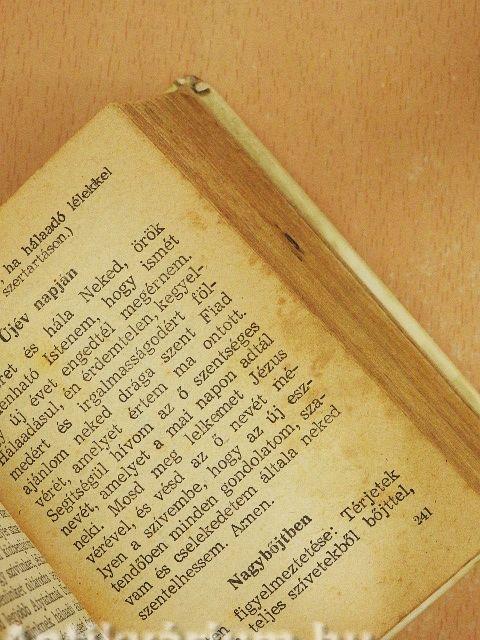 ha hálaadó lélekkel
szertartáson.)
Újév napján
és hála Neked, örök
Istenem, hogy ismét
új évet engedtél megérnem.
Hálaadásul, én érdemtelen, kegyel-
medért és irgalmasságodért föl-
ajánlom neked drága szent Fiad
vérét, amelyet értem ma ontott.
Segítségül hívom az ő szentséges
nevét, amelyet a mai napon adtál
neki. Mosd meg lelkemet Jézus
vérével, és vésd az ő nevét mé-
lyen a szívembe, hogy az új esz-
tendőben minden gondolatom, sza-
vam és cselekedetem általa neked
szentelhessem. Amen.
Nagybőjtben
figyelmeztetése: Térjetek
teljes szívetekből bőjttel,
241